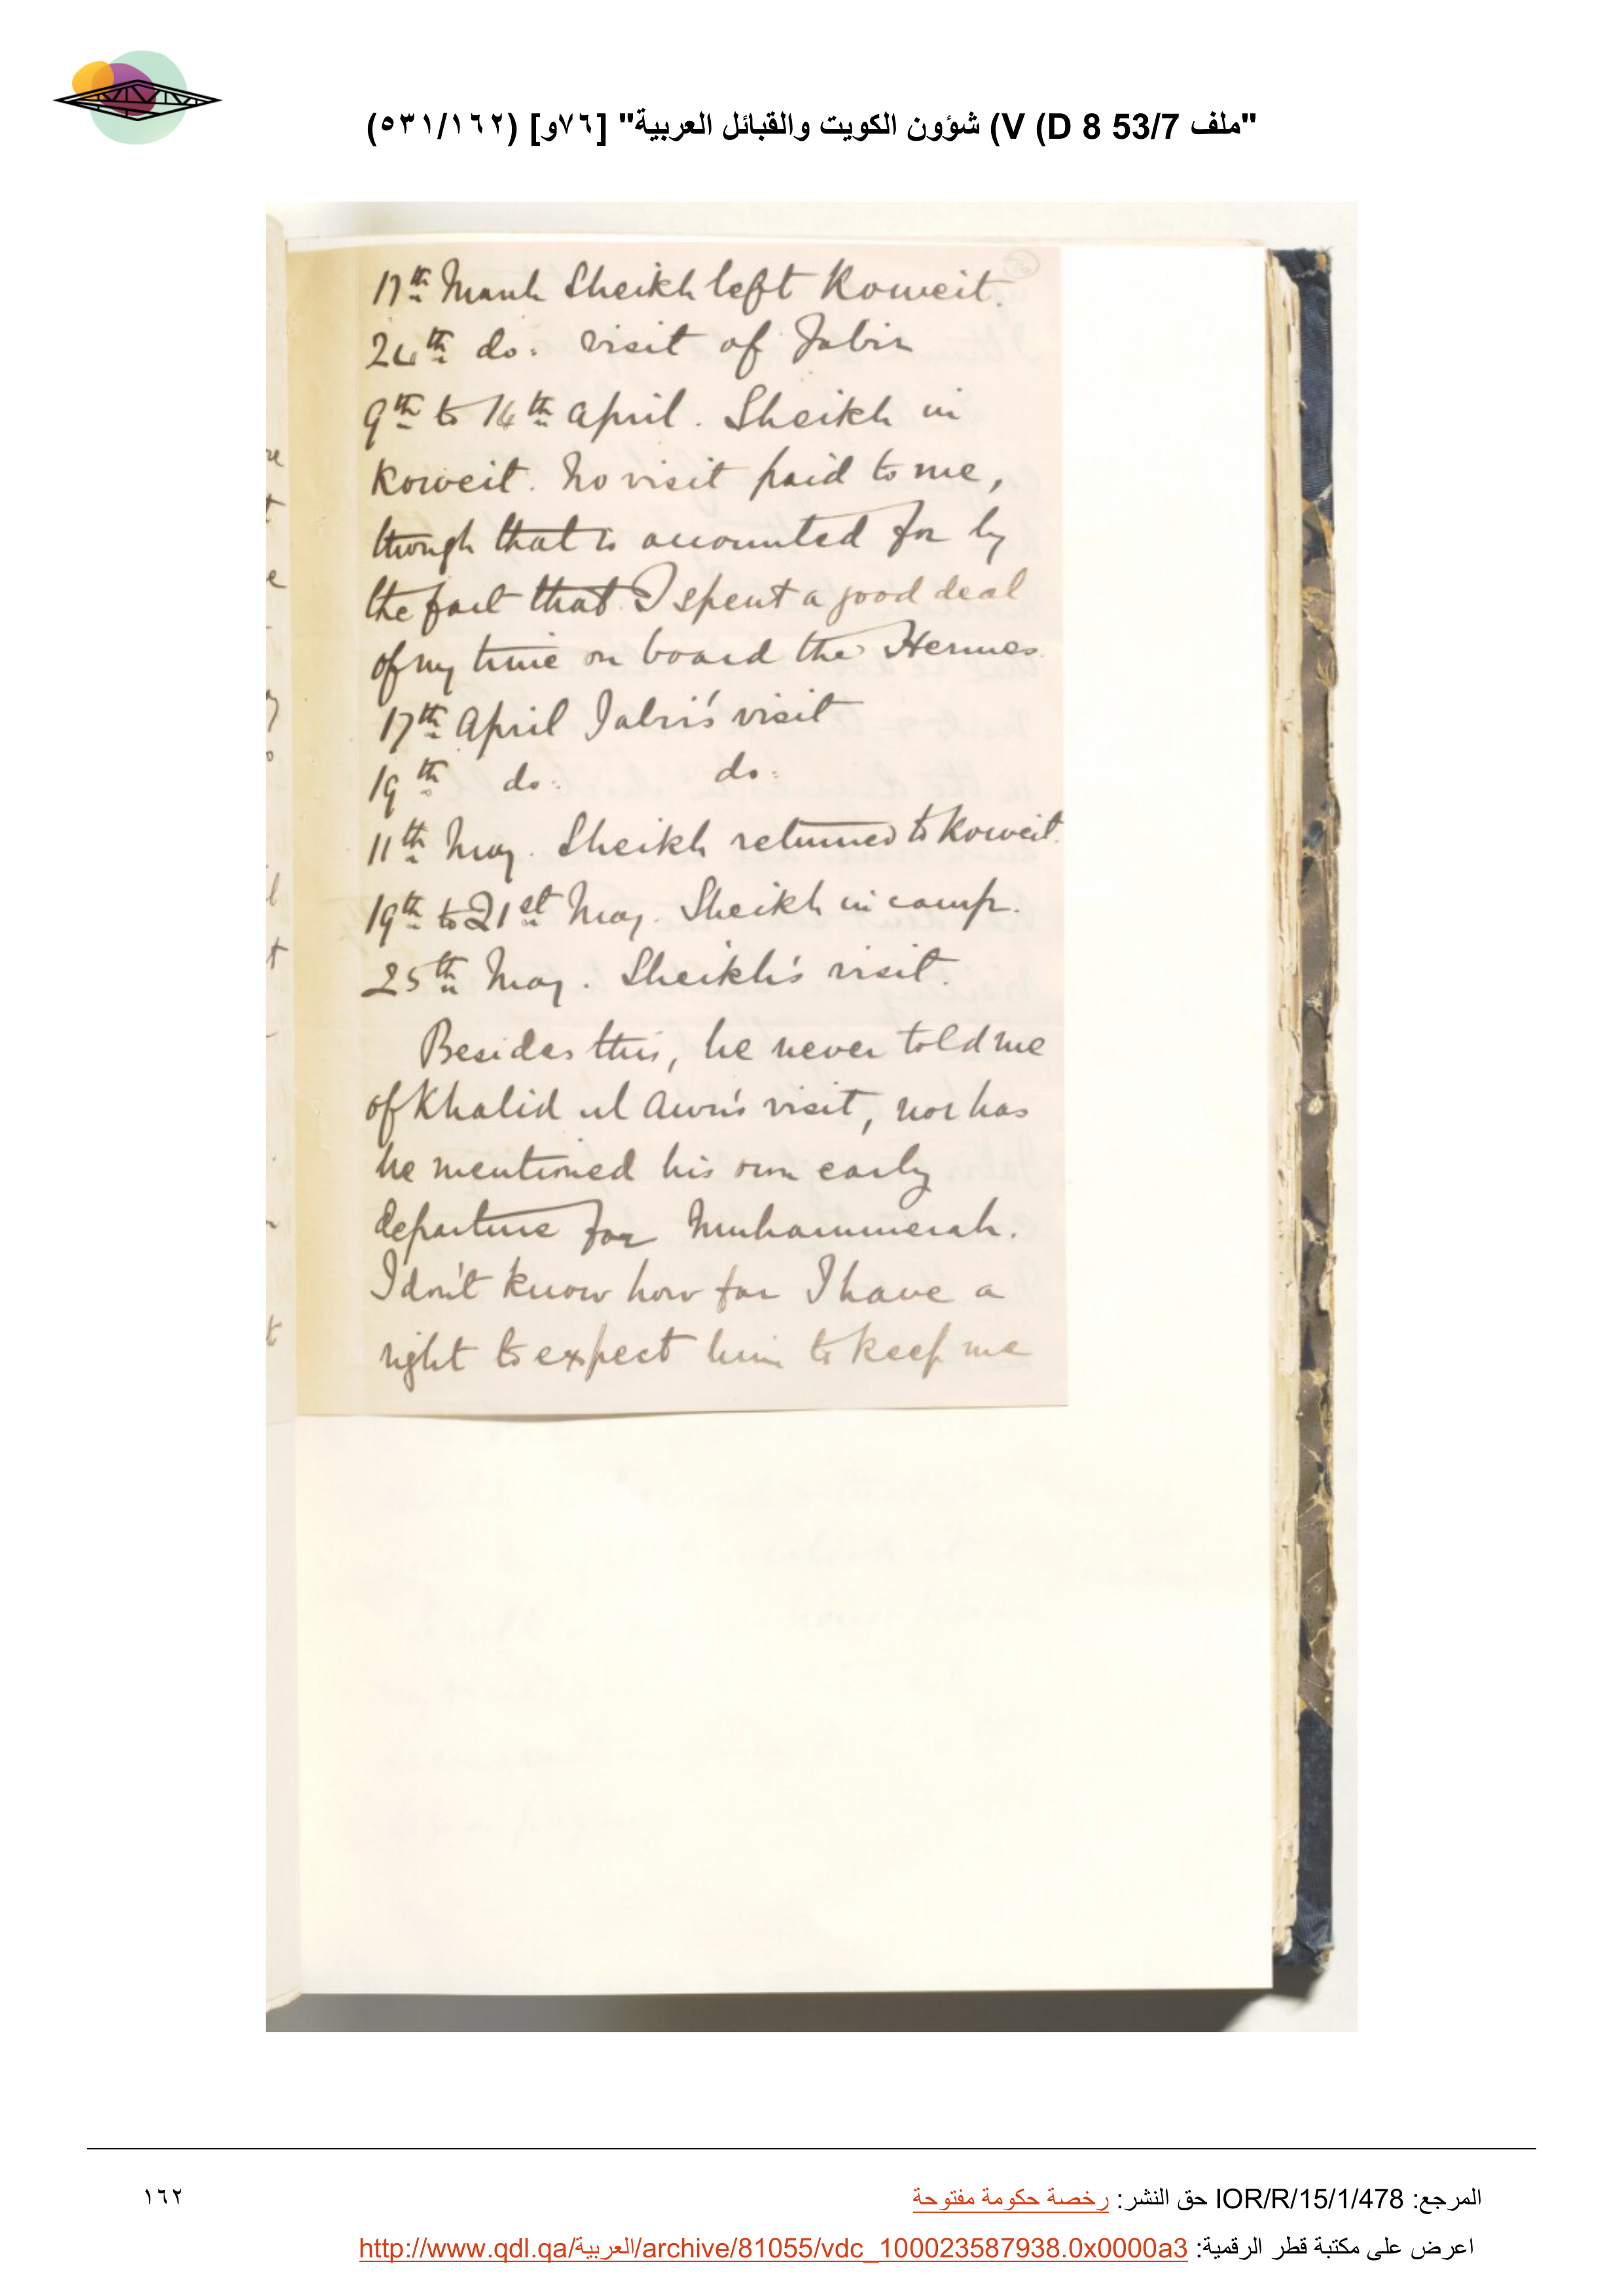 "ملف 53/7 D 8) V) شؤون الكويت والقبائل العربية" [٧٦و] (٥٣١/١٦٢)
17th March Sheikh left Koweit.
24th do. visit of Jabir
9th to 14th April. Sheikh in
Koweit. No visit paid to me,
though that is accounted for by
the fact that I spent a good deal
of my time on board the Hermes
17th April Jabir's visit
19th do: do:
11th May. Sheikh returned to Koweit.
19th to 21st May. Sheikh in camp.
25th May. Sheikh's visit.
Besides this, he never told me
of Khalid ul Awn's visit, nor has
he mentioned his own early
departure for Muhammerah.
I don't know how far I have a
right to expect him to keep me
المرجع: IOR/R/15/1/478 حق النشر: رخصة حكومة مفتوحة
١٦٢
اعرض على مكتبة قطر الرقمية: http://www.qdl.qa/العربية/archive/81055/vdc_100023587938.0x0000a3